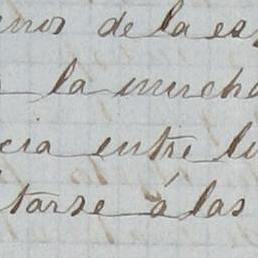 enos de la es
la mucha
cia entre lu
tarse á las